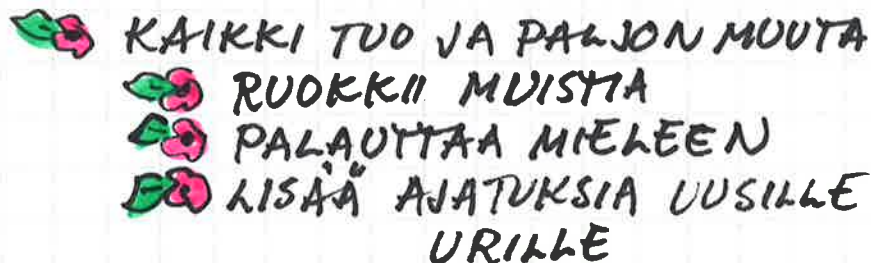 KAIKKI TUO JA PALJON MUUTA
RUOKKII MUISTIA
PALAUTTAA MIELEEN
LISÄÄ AJATUKSIA UUSILLE
URILLE